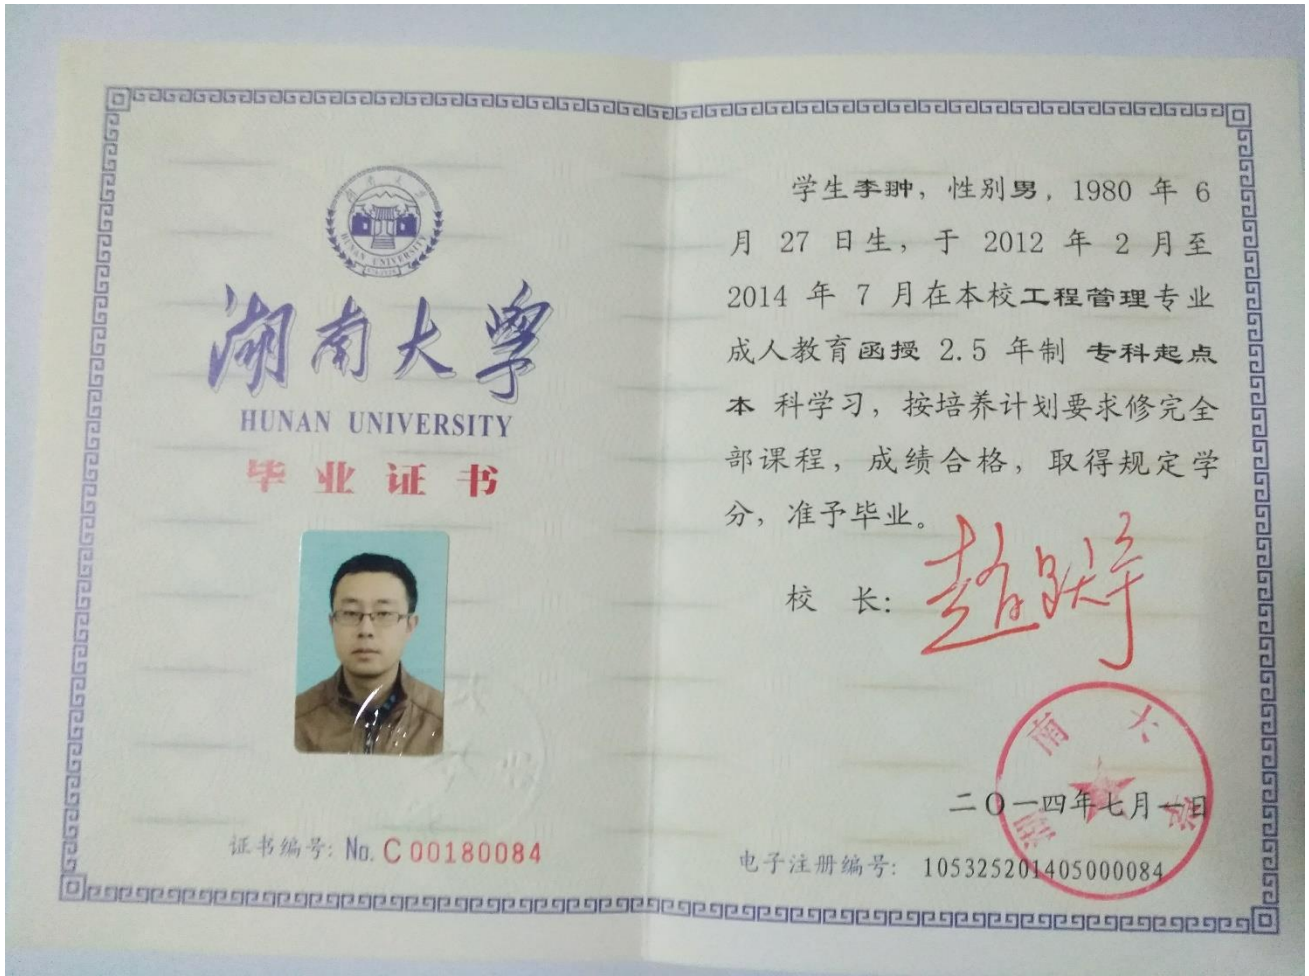 湖南大学
HUNAN UNIVERSITY
湖南大学
HUNAN UNIVERSITY
毕业证书
证书编号: No. C 00180084
学生李翀，性别男，1980 年 6
月 27 日生，于 2012 年 2 月至
2014 年 7 月在本校工程管理专业
成人教育函授 2.5 年制 专科起点
本 科学习，按培养计划要求修完全
部课程，成绩合格，取得规定学
分，准予毕业。
校 长:
赵跃宇
湖南大学
二〇一四年七月一日
电子注册编号: 105325201405000084